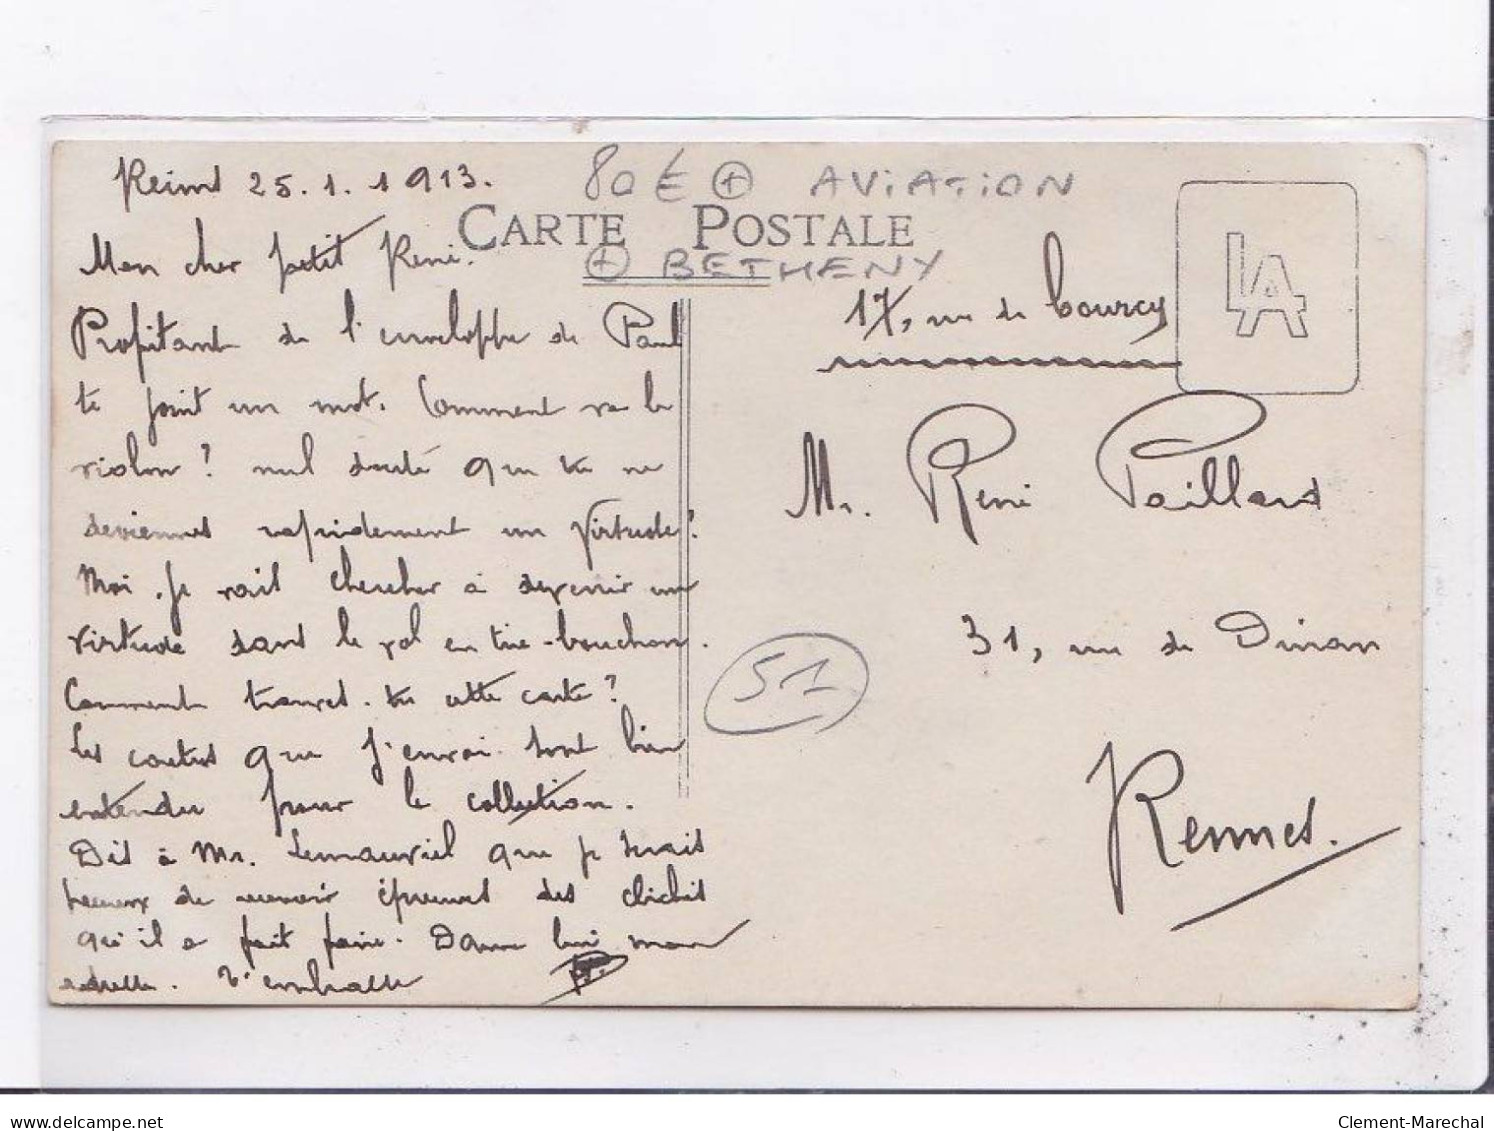 Reims 25.1.1913.
80€ + AVIATION
CARTE POSTALE
+ BETHENY
Mon cher petit René.
Profitant de l'enveloppe de Paul
te joint un mot. Comment va le
violon? nul doute que tu ne
deviennes rapidement un virtuose?
Moi. Je vais chercher à devenir un
virtuose dans le vol en tire-bouchon.
Comment trouves-tu cette carte?
Les cartes que j'envoi sont bien
entendu pour la collection.
Dis à Mr. que je serais
heureux de recevoir épreuves des clichés
qu'il a fait faire. Donne lui mon
adresse. T'embrasse
P.
17, rue de Courcy
LA
Mr. René Paillard
31, rue de Dinan
51
Rennes.
delcampe.net
Clement-Marechal